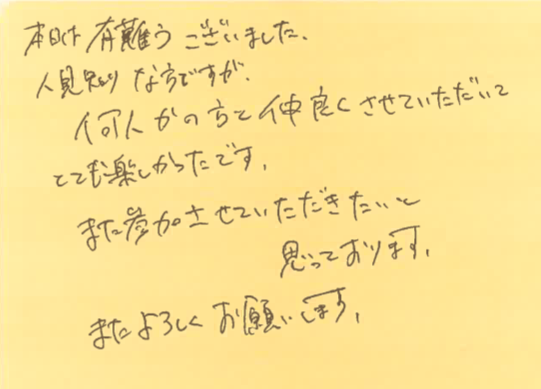 本日は有難うございました。
人見知りな方ですが、
何人かの方と仲良くさせていただいて
とても楽しかったです。
また参加させていただきたいと
思っております。
またよろしくお願いします。